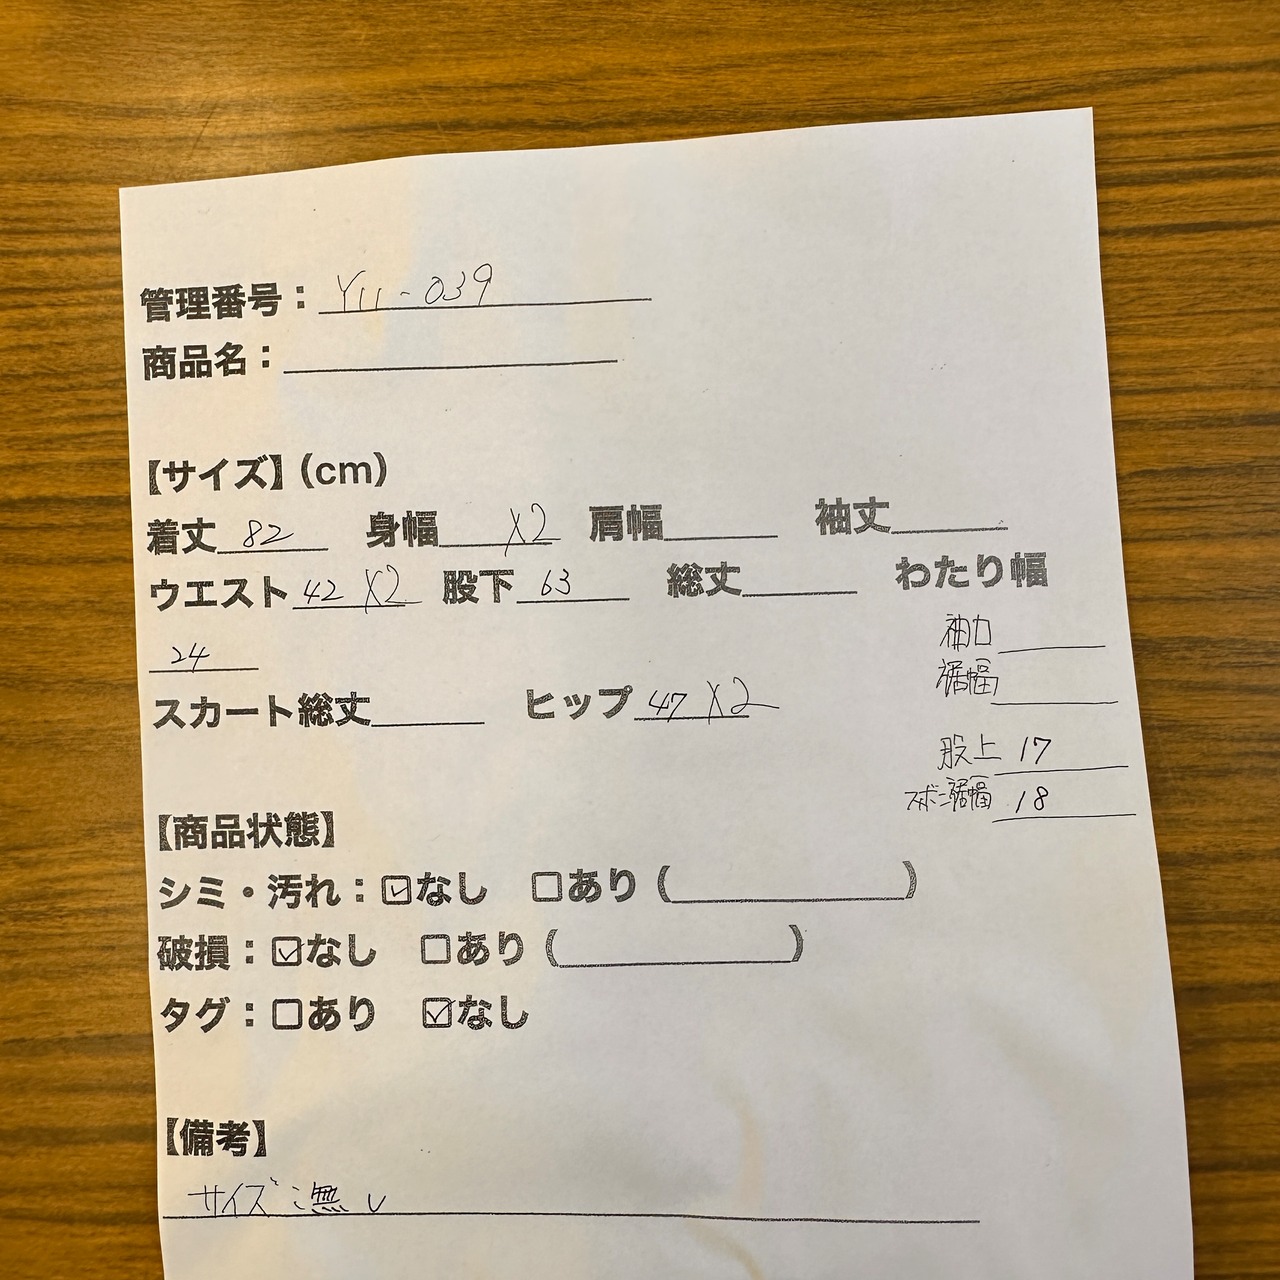 管理番号：Y11-039
商品名：
【サイズ】(cm)
着丈 82 身幅 X2 肩幅 袖丈
ウエスト 42 X2 股下 63 総丈 わたり幅
24
袖力
裾幅
スカート総丈 ヒップ 47 X2
股上 17
ズボン裾幅 18
【商品状態】
シミ・汚れ：☑なし □あり（ ）
破損：☑なし □あり（ ）
タグ：□あり ☑なし
【備考】
サイズ：無し